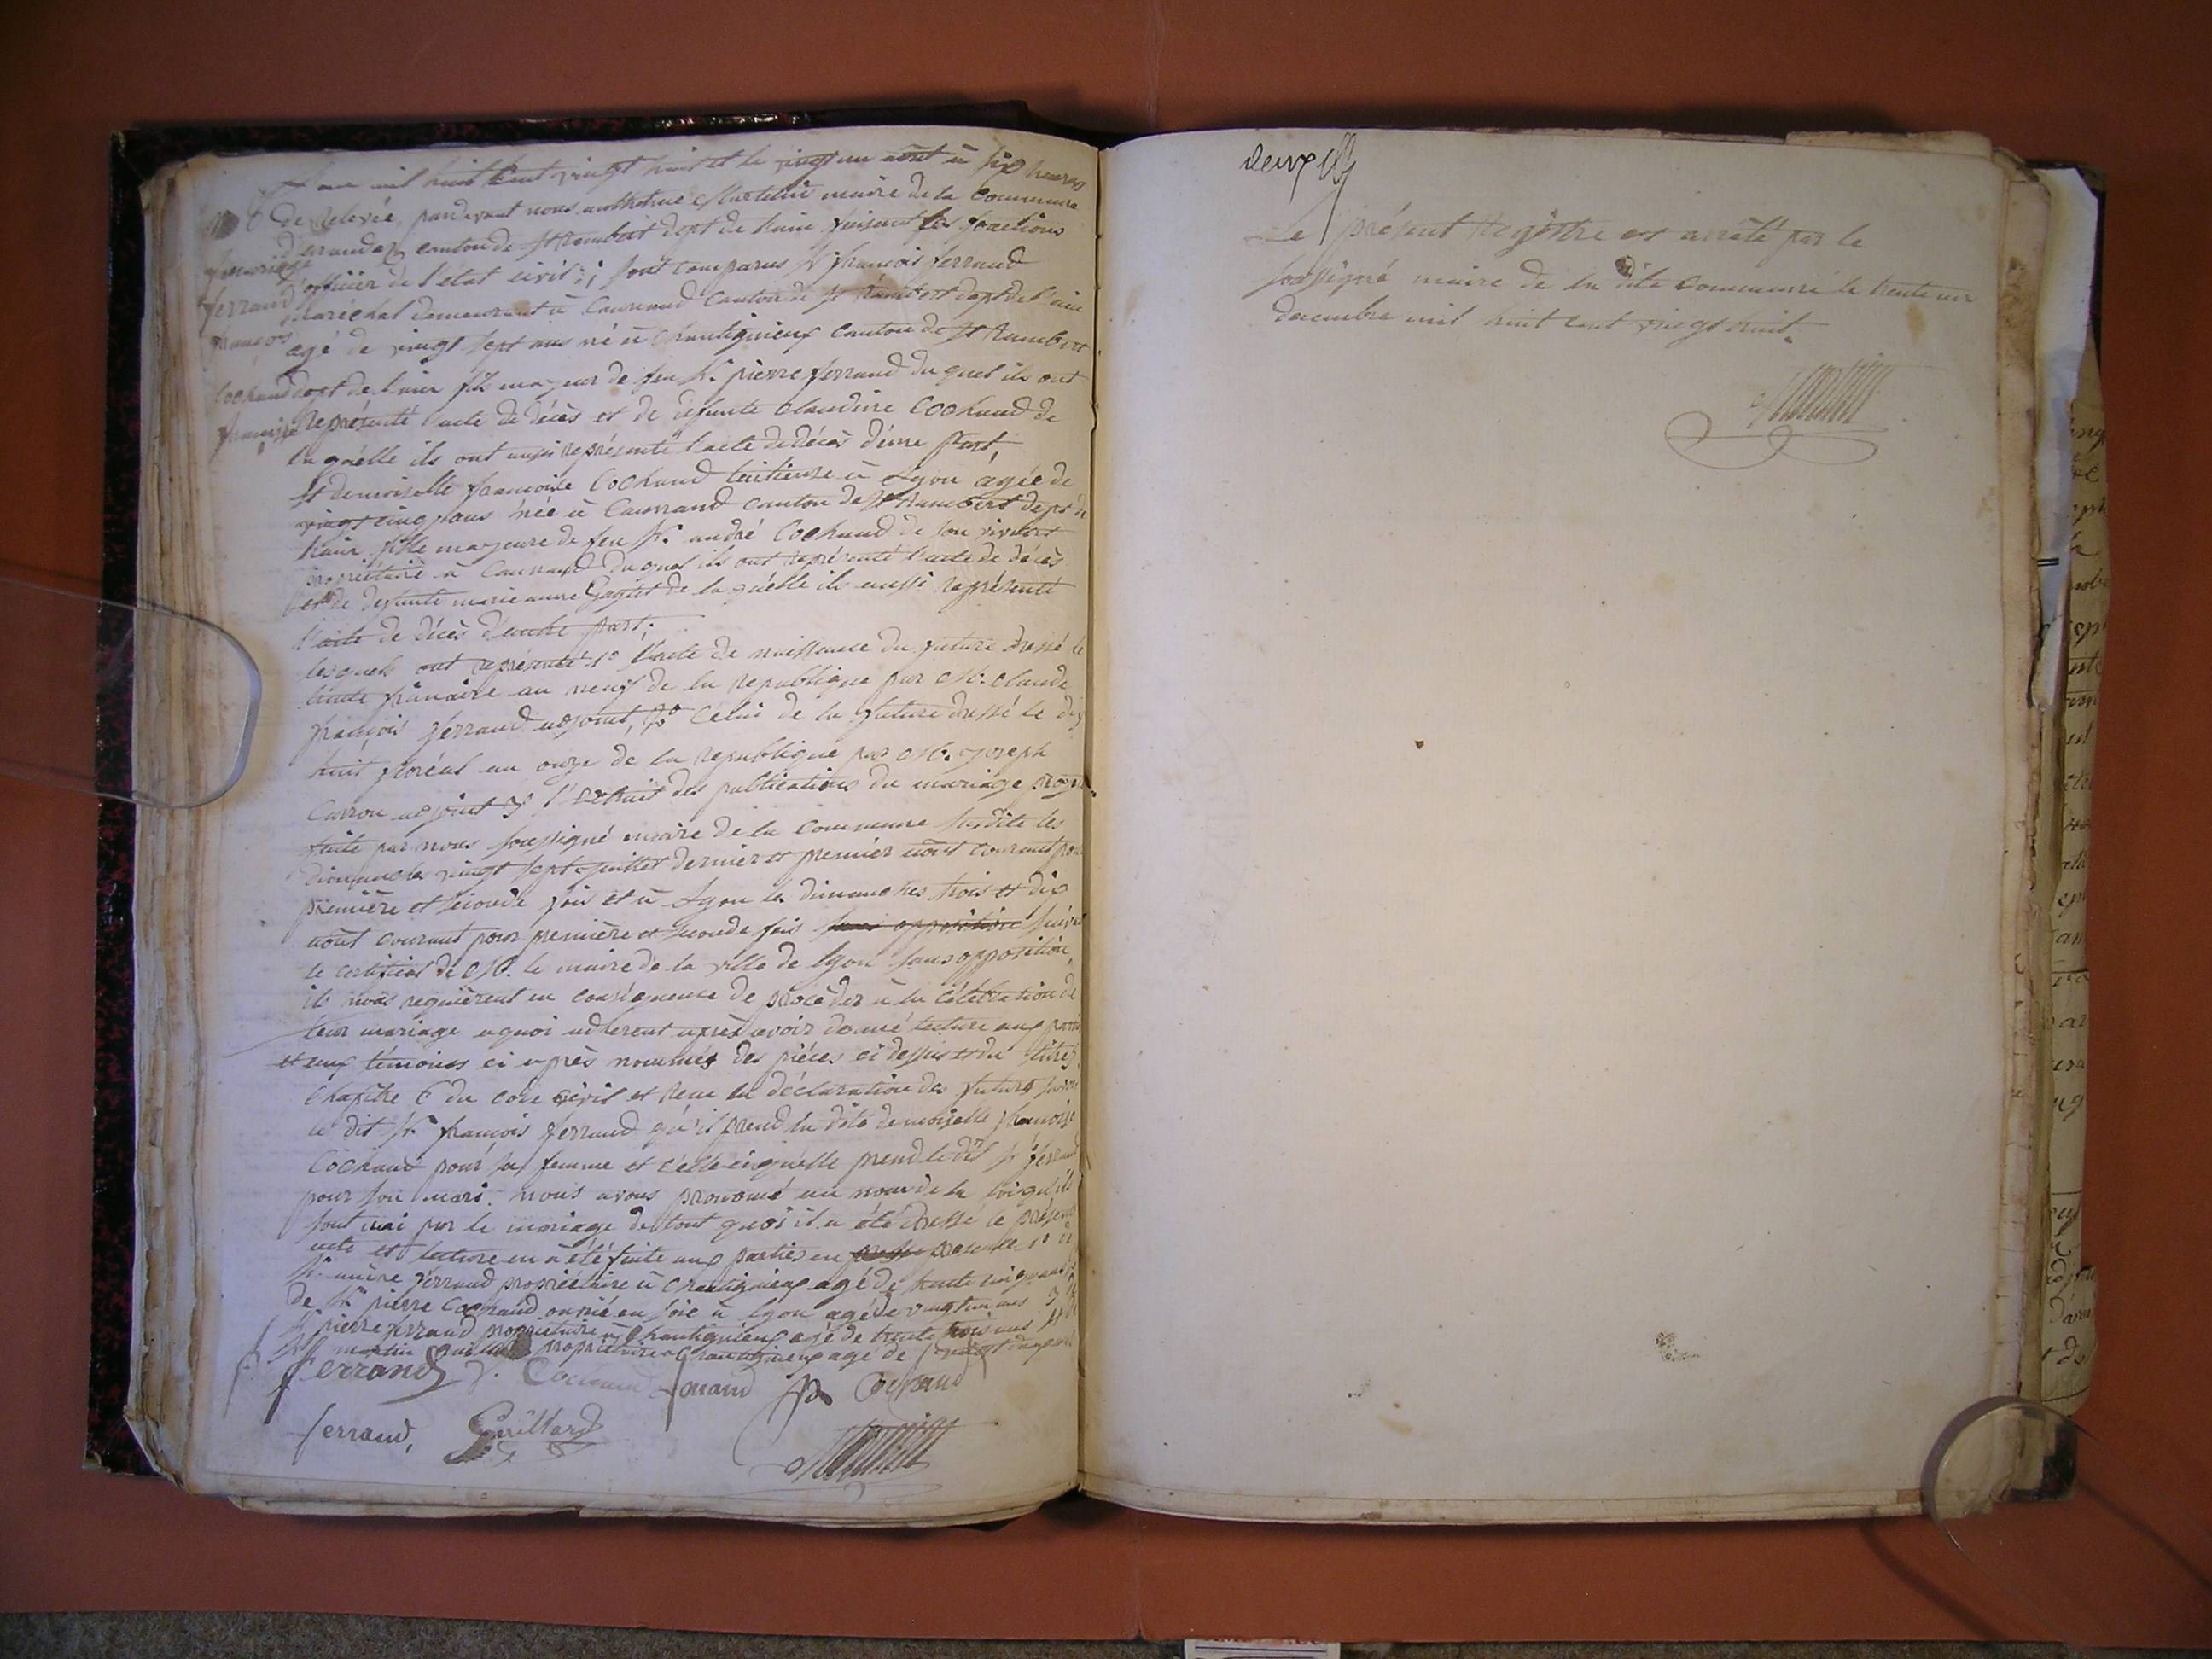 L'an mil huit cent vingt huit et le vingt un août à six heures
de relevée, pardevant nous anthelme Martelin maire de la Commune
d'arandas canton de st Rambert dept de l'ain faisant les fonctions
d'officier de l'état civil; sont comparus Sr françois ferrand
maréchal demeurant à Caunand Canton de st Rambert dept de l'ain
agé de vingt sept ans né à Chantignieux Canton de st Rambert
dept de l'ain fils majeur de feu Sr. pierre ferrand du quel ils ont
représenté l'acte de décès et de défunte Claudine Cochaud de
la quélle ils ont aussi représenté l'acte de décès d'une part,
mariage
ferrand
françois
Cochaud
françoise
et demoiselle francoise Cochaud à Lyon agée de
vingt cinq ans née à Caunand canton de st Rambert dept de
l'ain fille majeure de feu Sr. andré Cochaud de son vivant
propriétaire à Caunand du quel ils ont représenté l'acte de décès
et de defunte marie anne de la quélle ils aussi représenté
l'acte de décès d'autre part;
lesquels ont représenté 1° l'acte de naissance du future dressé le
trente frimaire an neuf de la republique par Mr. claude
françois ferrand adjoint, 2° Celui de la future dressé le dix
huit floréal an onze de la republique par Mr. joseph
Carron adjoint 3° l'extrait des publications du mariage
faite par nous soussigné maire de la commune susdite les
dimanches vingt sept juillet dernier et premier août courant pour
première et seconde fois et à Lyon les dimanches trois et dix
août courant pour première et seconde fois sans opposition suivant
le certificat de Mr. le maire de la ville de lyon sans opposition,
ils nous requièrent en conséquence de procèder à la célébration de
leur mariage a quoi adherent après avoir donné lecture aux parties
et aux témoins ci après nommés des pièces ci dessus et du titre
chapitre 6 du code civil et recu la déclaration des futurs savoir
le dit Sr. françois ferrand qu'il prend la dite demoiselle francoise
Cochaud pour sa femme et celle ci qu'elle prend le dit Sr ferrand
pour son mari. nous avons prononcé au nom de la loi qu'ils
sont uni par le mariage de tout quoi il a été dressé le présent
acte et lecture en a été faite aux parties en presence 1° de
Sr. ferrand propriétaire à Chantignieux agé de trente cinq ans
de Sr pierre Cochaud ouvrié en soie à lyon agé de vingt un ans 3°
Sr pierre ferrand propriétaire à Chantignieux agé de trente trois ans 4°
Sr martin Guillard propriétaire à Chantignieux agé de
f ferrand f. Cochaud ferrand p Cochaud
ferrand, Guillard
Martelin
deux
Le présent Registre est arrêté par le
soussigné maire de la dite Commune le trente un
decembre mil huit cent vingt huit.
Martelin